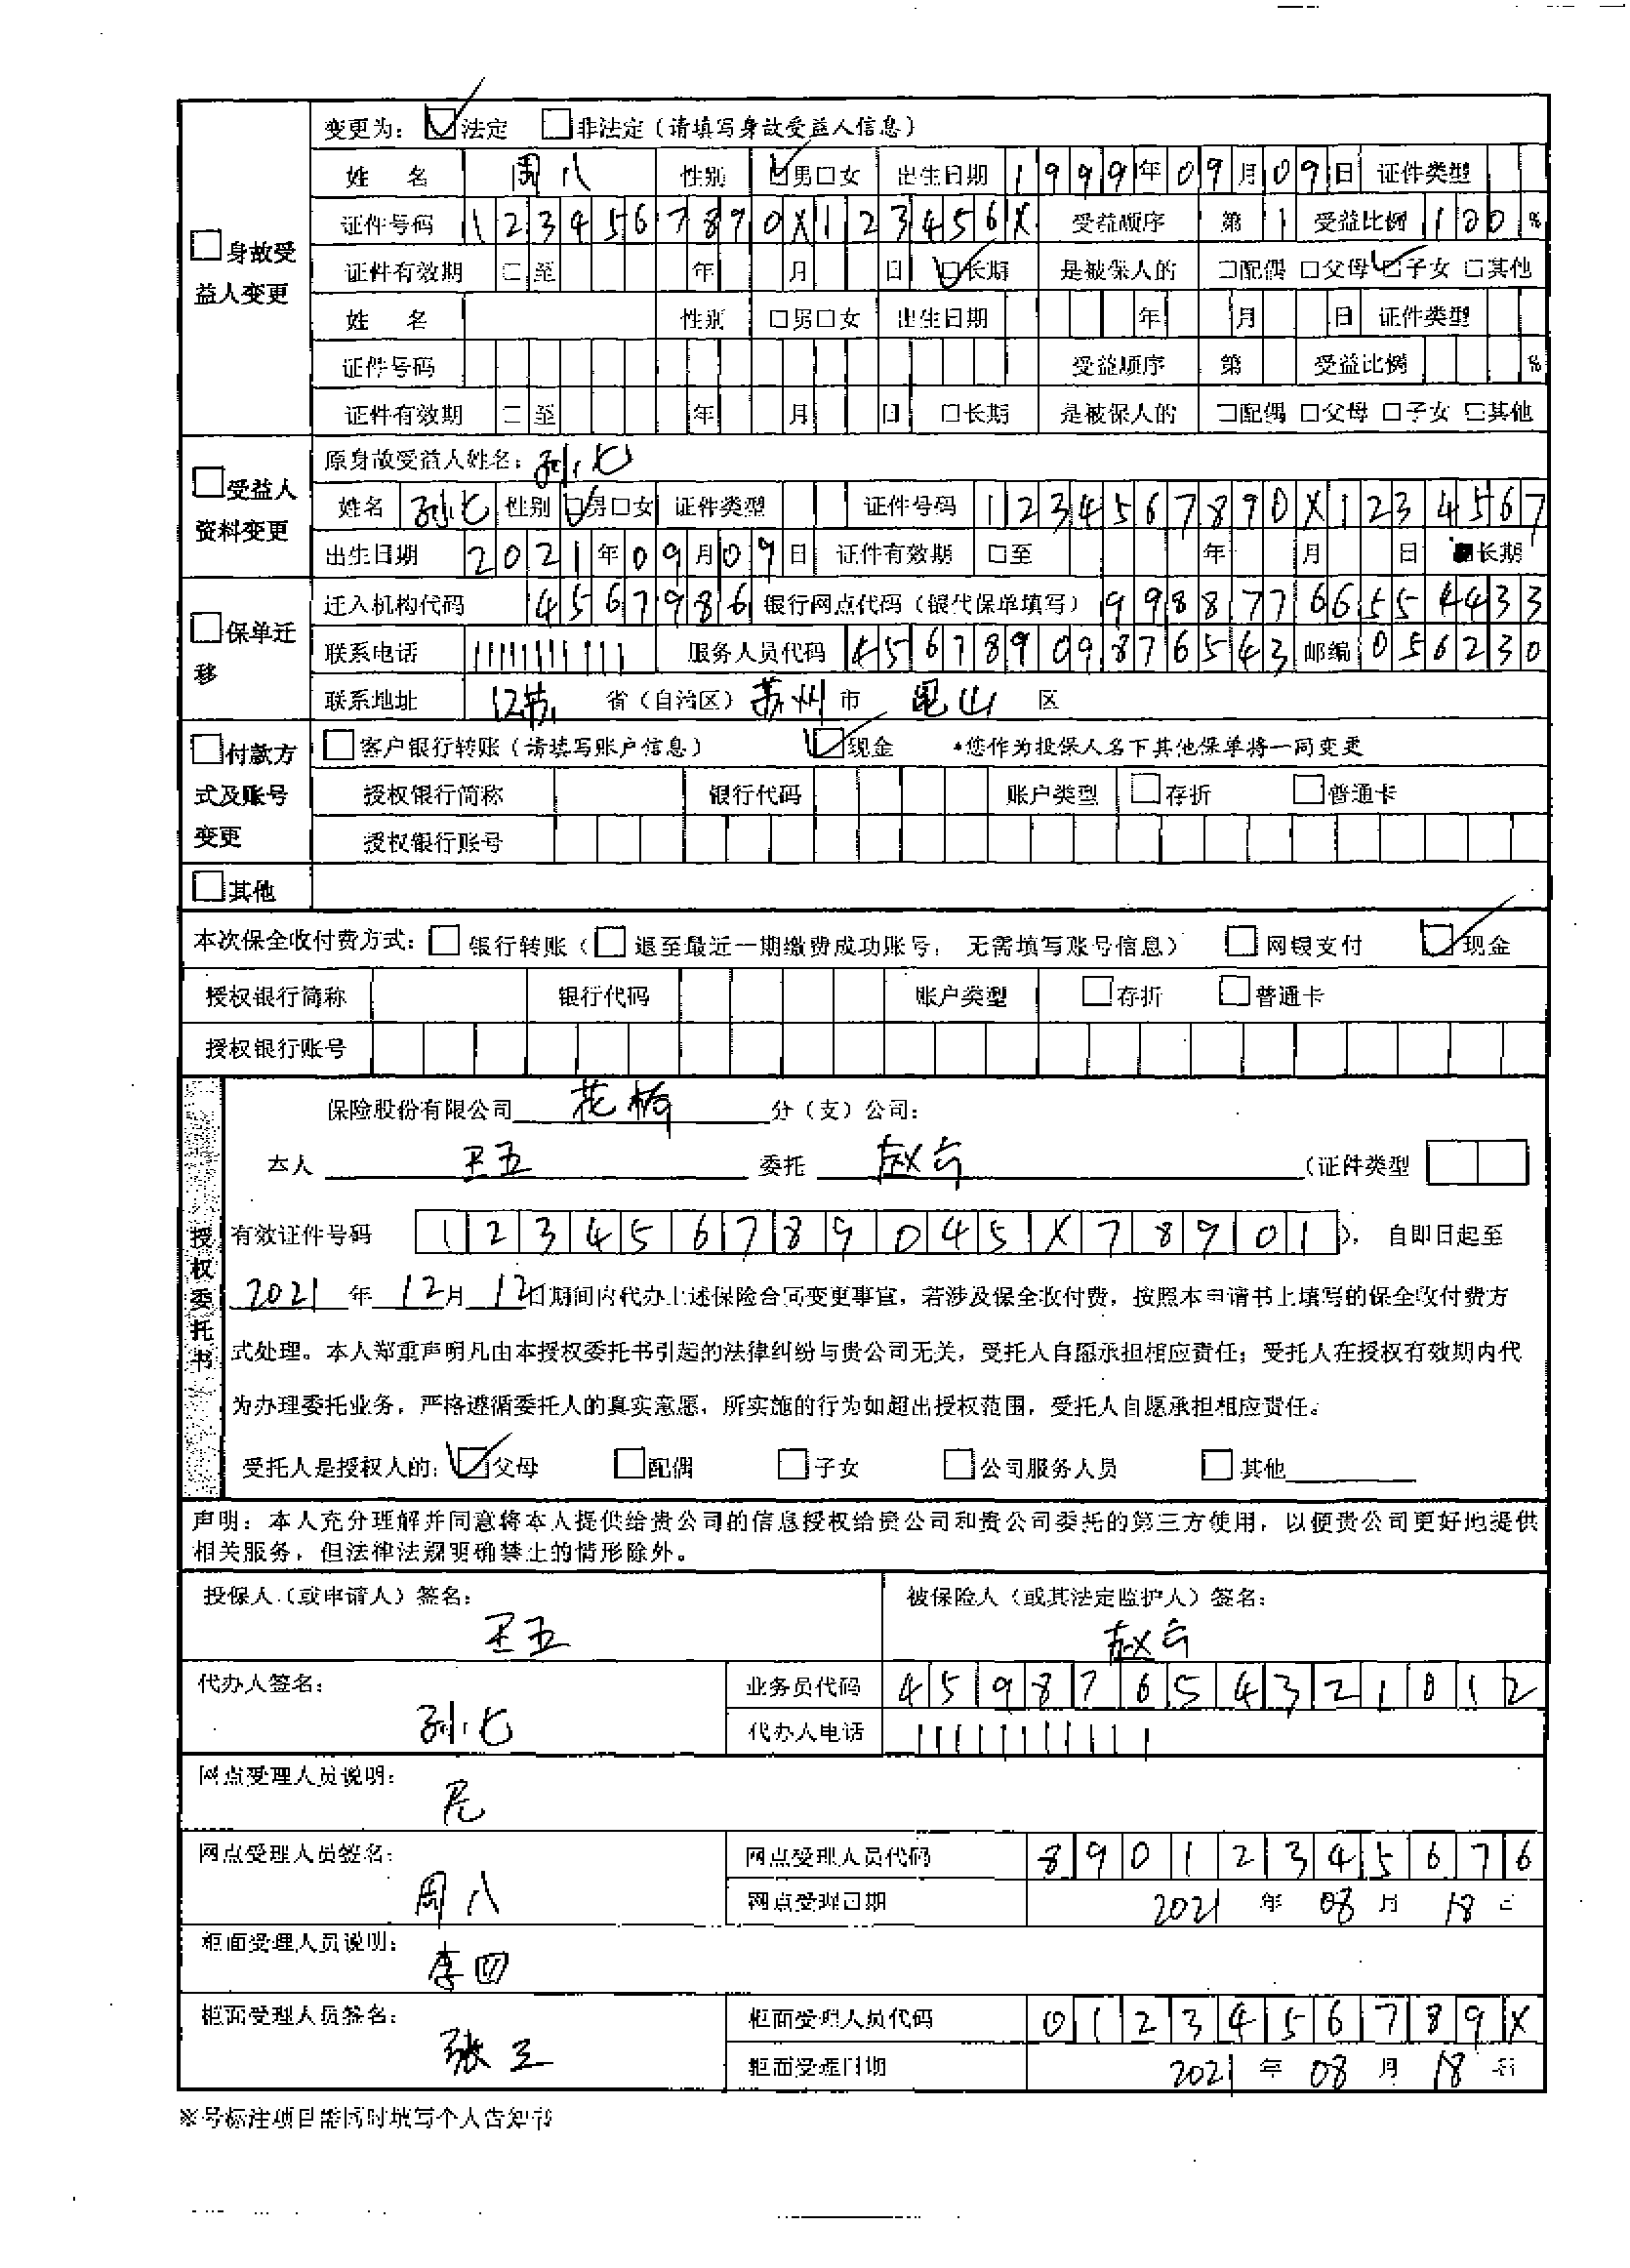 变更为: ☑法定 □非法定（请填写身故受益人信息）
□身故受益人变更
姓 名 周八 性别 ☑男□女 出生日期 1999年09月09日 证件类型
证件号码 1234567890X123456X 受益顺序 第1 受益比例 100%
证件有效期 □至 年 月 日 ☑长期 是被保人的 □配偶 □父母 ☑子女 □其他
姓 名 性别 □男□女 出生日期 年 月 日 证件类型
证件号码 受益顺序 第 受益比例 %
证件有效期 □至 年 月 日 □长期 是被保人的 □配偶 □父母 □子女 □其他
□受益人资料变更
原身故受益人姓名: 孙七
姓名 孙七 性别 ☑男□女 证件类型 证件号码 1234567890X1234567
出生日期 2021年09月09日 证件有效期 □至 年 月 日 ■长期
□保单迁移
迁入机构代码 4567986 银行网点代码（银代保单填写） 99887766554433
联系电话 11111111111 服务人员代码 45678909876543 邮编 056230
联系地址 江苏 省（自治区） 苏州 市 昆山 区
□付款方式及账号变更
□客户银行转账（请填写账户信息） ☑现金 *您作为投保人名下其他保单将一同变更
授权银行简称 银行代码 账户类型 □存折 □普通卡
授权银行账号
□其他
本次保全收付费方式: □ 银行转账（□ 退至最近一期缴费成功账号, 无需填写账号信息） □ 网银支付 ☑现金
授权银行简称 银行代码 账户类型 □存折 □普通卡
授权银行账号
授权委托书
保险股份有限公司 花桥 分（支）公司:
本人 王五 委托 赵六 （证件类型
有效证件号码 123456789045X78901 ）, 自即日起至
2021 年 12月 12日期间内代办上述保险合同变更事宜, 若涉及保全收付费, 按照本申请书上填写的保全收付费方
式处理。本人郑重声明凡由本授权委托书引起的法律纠纷与贵公司无关, 受托人自愿承担相应责任; 受托人在授权有效期内代
为办理委托业务, 严格遵循委托人的真实意愿, 所实施的行为如超出授权范围, 受托人自愿承担相应责任。
受托人是授权人的: ☑父母 □配偶 □子女 □公司服务人员 □其他
声明: 本人充分理解并同意将本人提供给贵公司的信息授权给贵公司和贵公司委托的第三方使用, 以便贵公司更好地提供
相关服务, 但法律法规明确禁止的情形除外。
投保人（或申请人）签名: 王五 被保险人（或其法定监护人）签名: 赵六
代办人签名: 孙七 业务员代码 45987654321012
代办人电话 11111111111
网点受理人员说明: 无
网点受理人员签名: 周八 网点受理人员代码 89012345676
网点受理日期 2021 年 08 月 18 日
柜面受理人员说明: 李四
柜面受理人员签名: 张三 柜面受理人员代码 0123456789X
柜面受理日期 2021 年 08 月 18 日
※号标注项目需同时填写个人告知书